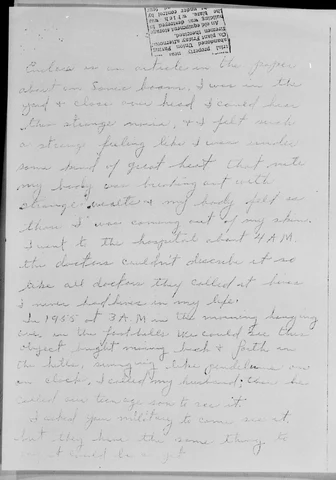 Enclose is an article in the paper
about on Sonic booms. I was in the
yard & close over head I could hear
this strange noise, & I felt such
a strange feeling like I was under
some kind of great heat that nite
my body was breaking out with
strange welts & my body felt as
though I was coming out of my skin.
I went to the hospital about 4 A.M.
the doctors couldn't describe it so
like all doctors they called it hives
I never had hives in my life.
In 1955 at 3 A.M in the morning hanging
in the foothills we could see this
object bright moving back & forth in
the hills, swinging like pendelum on
a clock, I called my husband he
called our teenage son to see it.
I asked your military to come see it,
but they have the same thing to
it could be a jet